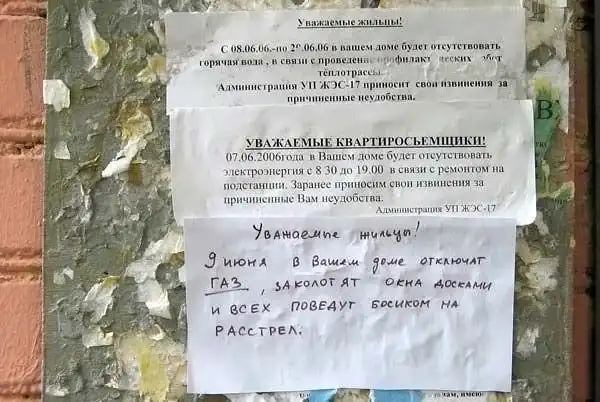 Уважаемые жильцы!
С 08.06.06.-по 2 .06.06 в вашем доме будет отсутствовать
горячая вода , в связи с проведени профилакт ческих бот
теплотрассы.
Администрация УП ЖЭС-17 приносит свои извинения за
причиненные неудобства.
В
УВАЖАЕМЫЕ КВАРТИРОСЬЕМЩИКИ!
07.06.2006года в Вашем доме будет отсутствовать
электроэнергия с 8 30 до 19.00 в связи с ремонтом на
подстанции. Заранее приносим свои извинения за
причиненные Вам неудобства.
Администрация УП ЖЭС-17
Уважаемые жильцы!
9 июня в Вашем доме отключат
ГАЗ, заколотят окна досками
и всех поведут босиком на
РАССТРЕЛ.